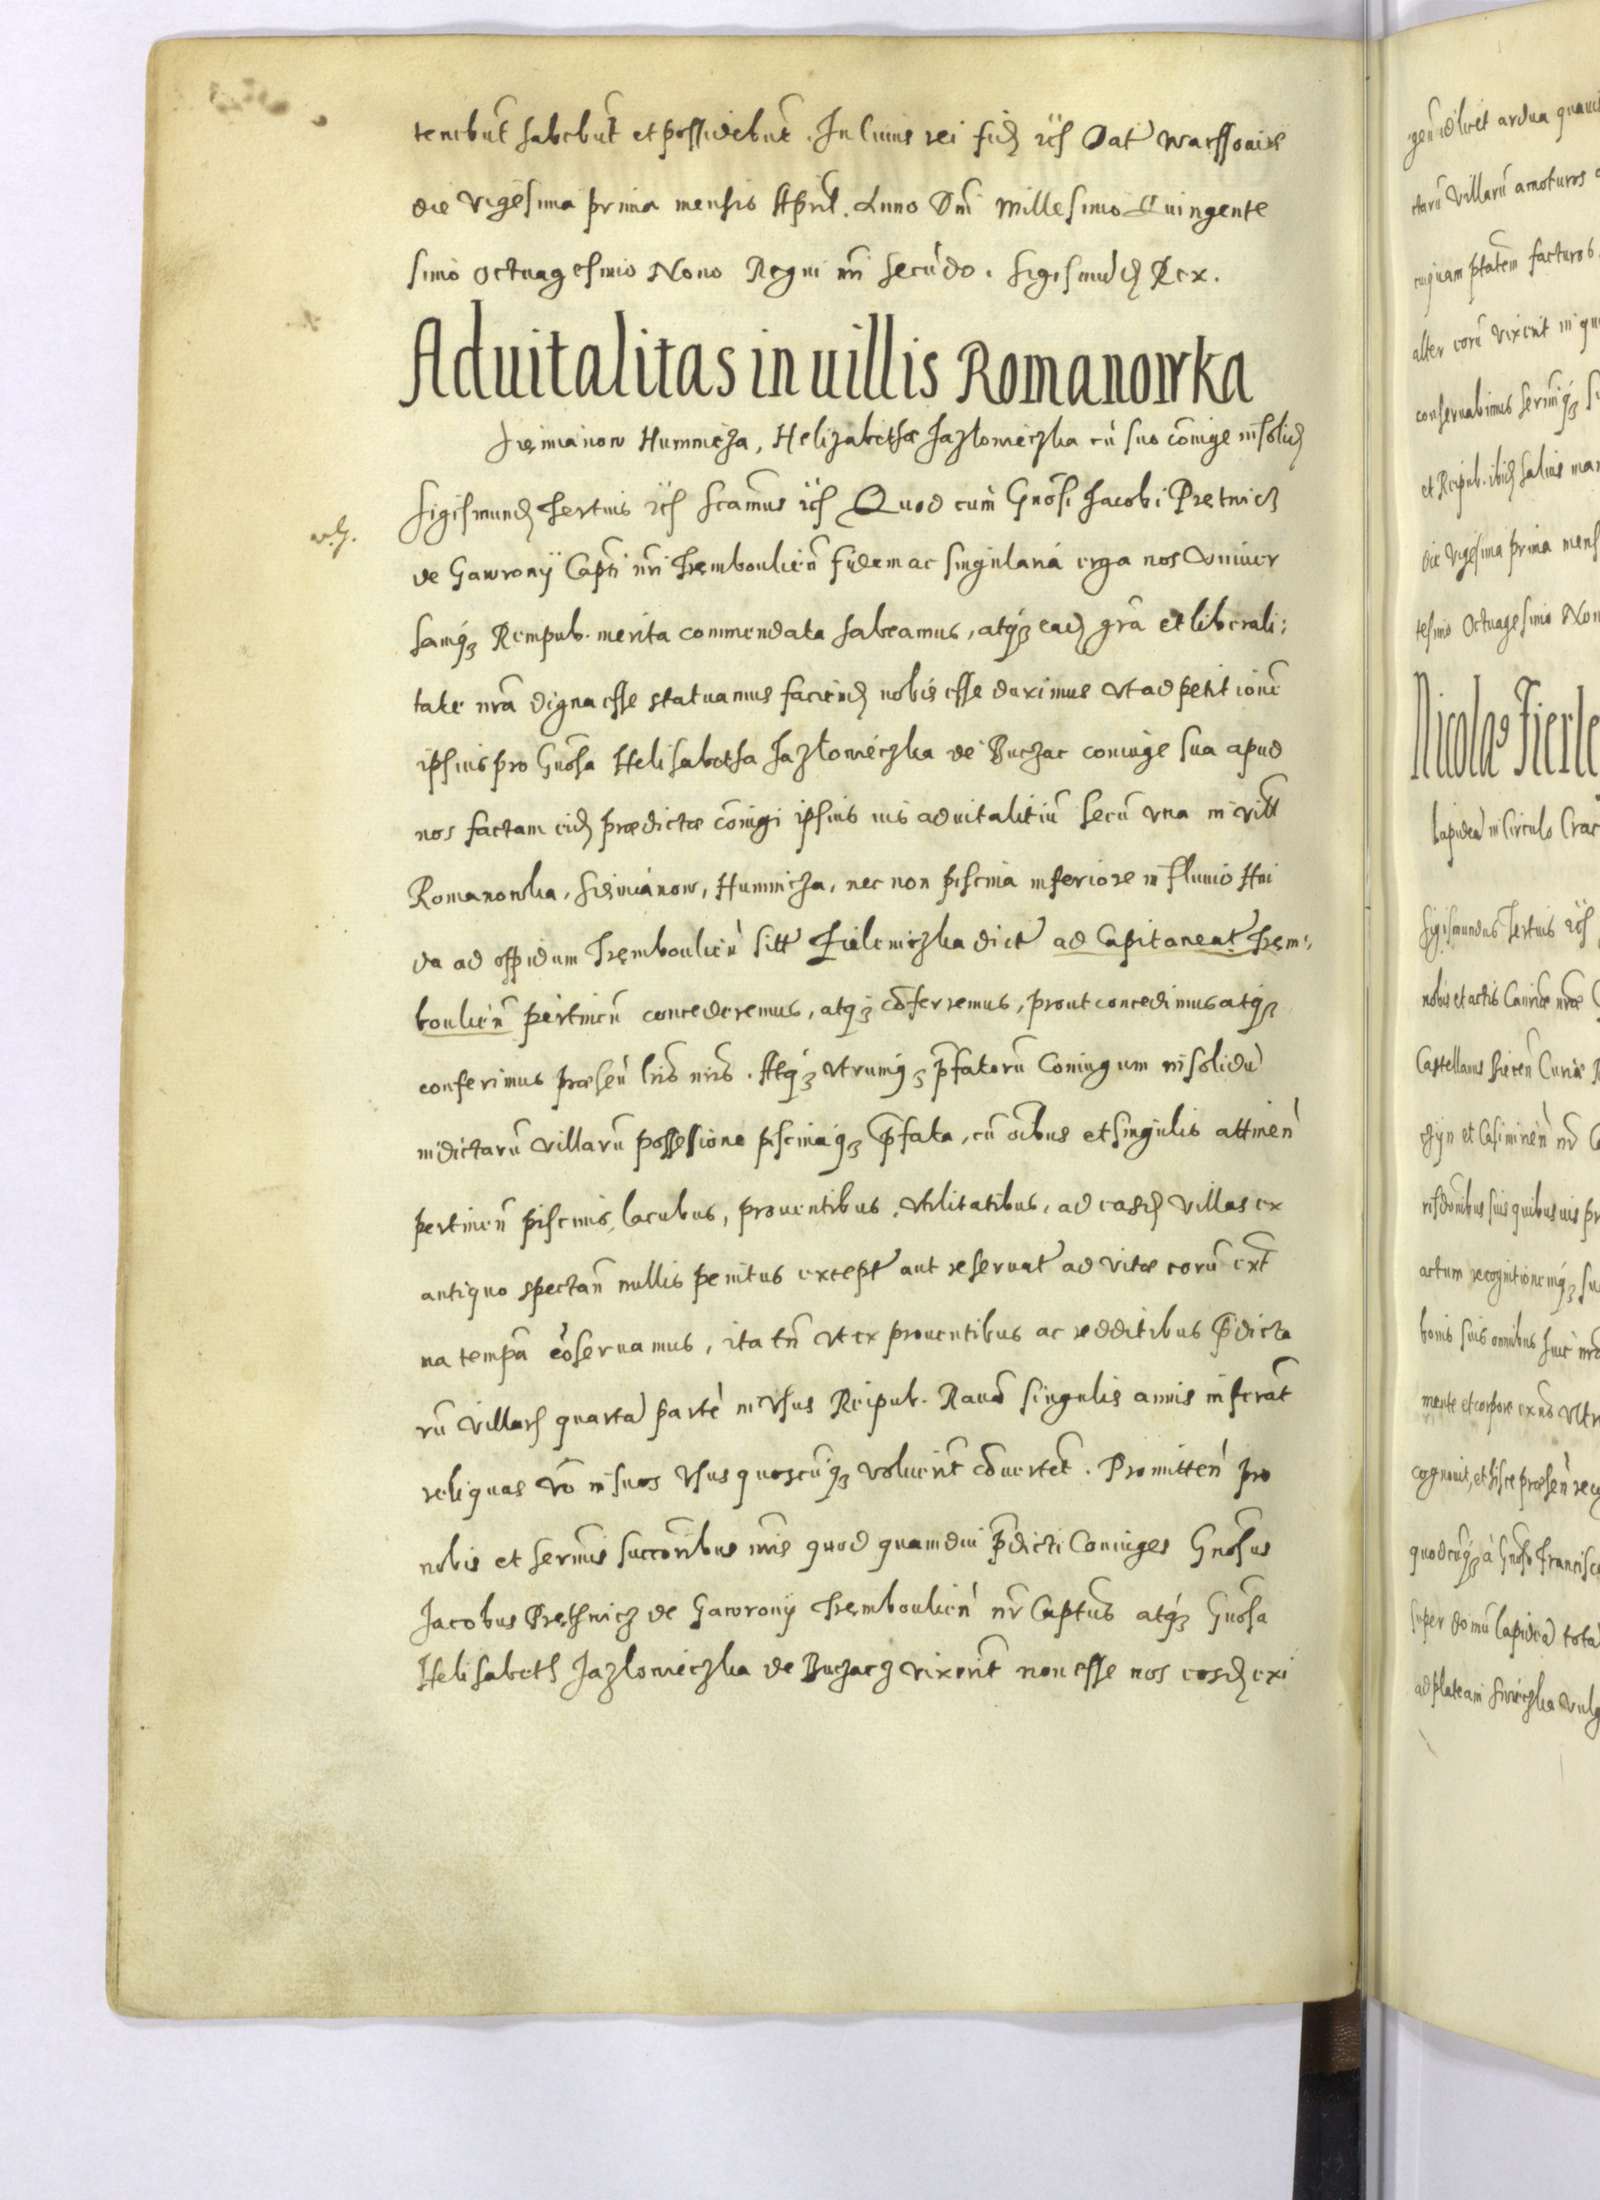 tenebūt habebūt et possidebūt. In Cuius rei fidē etc Dat Warssoviæ
die Vigesima prima mensis Apriľ. Anno Dni Millesimo Quingente
simo Octuagesimo Nono Regni nri secūdo. Sigismūdꝰ Rex.
Advitalitas in villis Romanowka
Siemianow Humnicza, Helizabethæ Jazlowieczka cū suo cōiuge in solidū
Sigismundꝰ Tertius etc Scamus etc Quod cum Gnosi Jacobi Prętwicz
v. g.
de Gawrony Captī nri Tręmboulień fidem ac singularia erga nos Vniuer
samq3 Rempub. merita commendata habeamus, atq3 eadē gra et liberali:
tate nra digna esse statuamus faciendū nobis esse duximus vt ad petitionē
ipsius pro Gnosa Helisabetha Jazlowieczka de Buczac coniuge sua apud
nos factam eidē prædictæ cōiugi ipsius ius aduitalitiū secū vna in vill
Romanowka, Siemianow, Humnicza, nec non piscina inferiore in fluuio Hni
da ad oppidum Tręmboulień sitt Zieleniczka dict ad Capitaneat Tręm:
boulień pertineń concederemus, atq3 cōferremus, prout concedimus atq3
conferimus præseń lris nris. Atq3 vtrumq3 p̄fatorū Coniugum in solidū
in dictarū villarū possessione piscinaq3 p̄fata, cū oībus et singulis attineń
pertineń piscinis, lacubus, prouentibus, vtilitatibus, ad easdē villas ex
antiquo spectań nullis penitus except aut reseruat ad vitæ eorū ext
na tempa cōseruamus, ita tń vt ex prouentibus ac redditibus p̄dicta
rū villarū quartā partē in vsus Reipub. Rauæ singulis annis inferāt
reliquas vō in suos vsus quoscūq3 voluerīt cōuertēt. Promitteń pro
nobis et sermis succoribus nris quod quamdiu p̄dicti Coniuges Gnosus
Jacobus Prethwicz de Gawrony Tręmboulień nr Captūs atq3 Gnosa
Helisabeth Jazlowieczka de Buczacz vixerīt non esse nos eosdē exi
geń id licet ardua quaui
ctarū villarū amoturos
cuiquam ptatem facturos
alter eorū vixerit in qu
conseruabimus sermiq3 su
et Reipub. ibid saluis man
die vigesima prima mens
tesimo Octuagesimo Non
Nicolaꝰ Fierle
lapideā in Circulo Crac
Sigismundus Tertius etc
nobis et actis Canriæ nræ
Castellanus Biecen Curiæ R
chyn et Casimireń nr
actum recognitionemq3 su
bonis suis omnibus huic nra
mente et corpore exńs vltr
cognouit, et hisce præseń reco
quodcūq3 à Gnoso Francisco
super domū lapideā totā
ad plateam Swieczka vulg